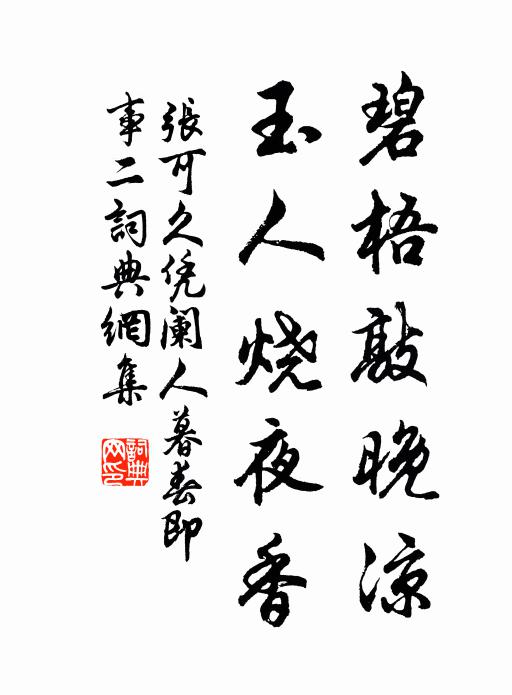 碧梧敲晚凉
玉人烧夜香
張可久凭闌人暮春即
事二詞典網集
詞典
网印